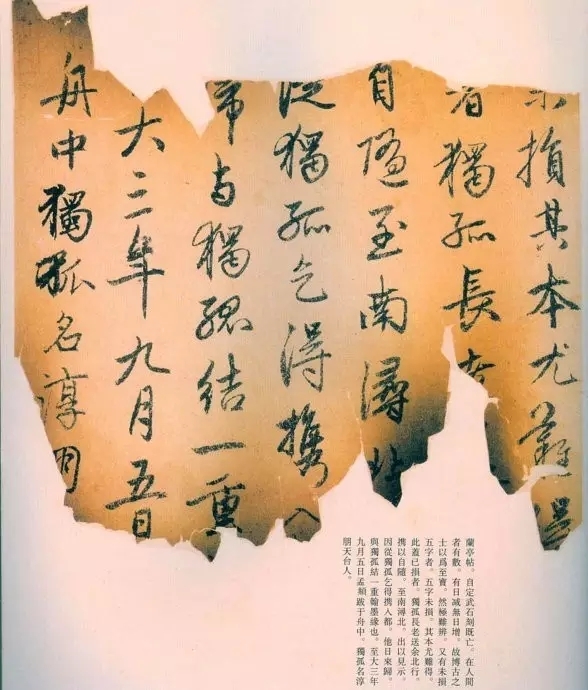 未損其本尤難得
者獨孤長老
自隨至南潯北
從獨孤乞得攜入
歸与獨孤結一重
大三年九月五日
舟中獨孤名淳朋
蘭亭帖。自定武石刻既亡。在人間
者有數。有日減無日增。故博古之
士以爲至寶。然極難辨。又有未損
五字者。五字未損。其本尤難得。
此蓋已損者。獨孤長老送余北行。
携以自隨。至南潯北。出以見示。
因從獨孤乞得携入都。他日來歸。
與獨孤結一重翰墨緣也。至大三年
九月五日孟頫跋于舟中。獨孤名淳
朋天台人。